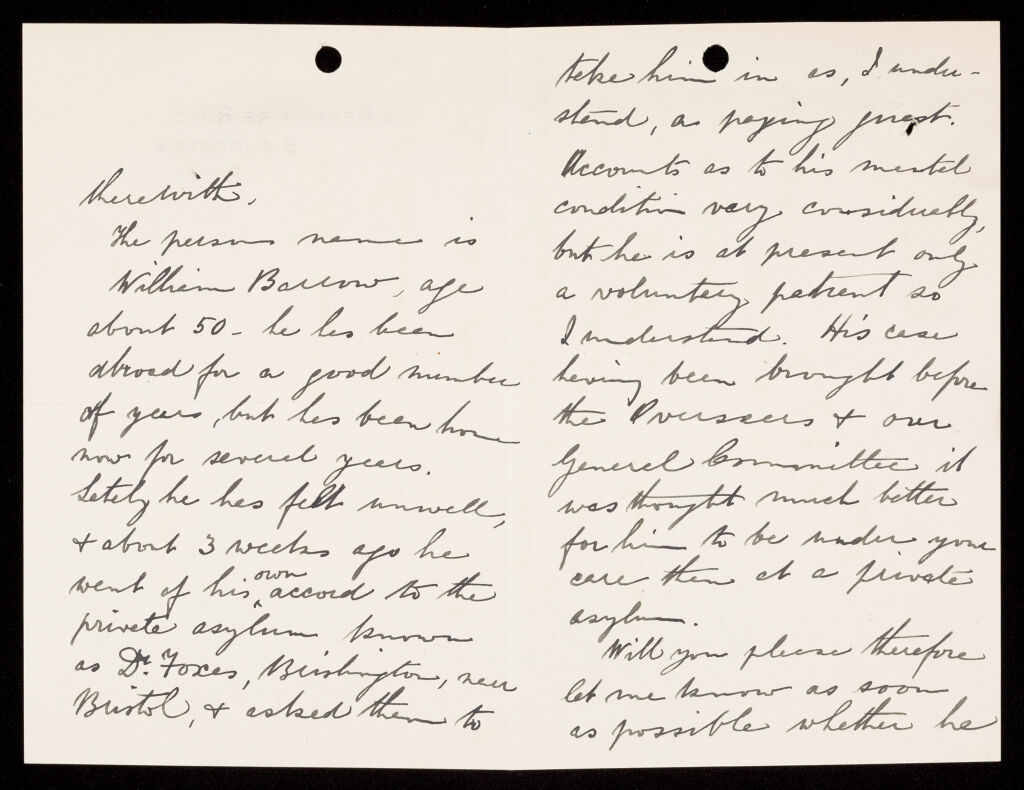 therewith.
The persons name is
William Barrow, age
about 50 - he has been
abroad for a good number
of years, but has been home
now for several years.
Lately he has felt unwell,
& about 3 weeks ago he
went of his own accord to the
private asylum known
as Dr. Foxes, Brislington, near
Bristol, & asked them to
take him in as, I under-
stand, as paying guest.
Accounts as to his mental
condition vary considerably,
but he is at present only
a voluntary patient so
I understand. His case
having been brought before
the Overseers & our
General Committee it
was thought much better
for him to be under your
care then at a private
asylum.
Will you please therefore
let me know as soon
as possible whether he